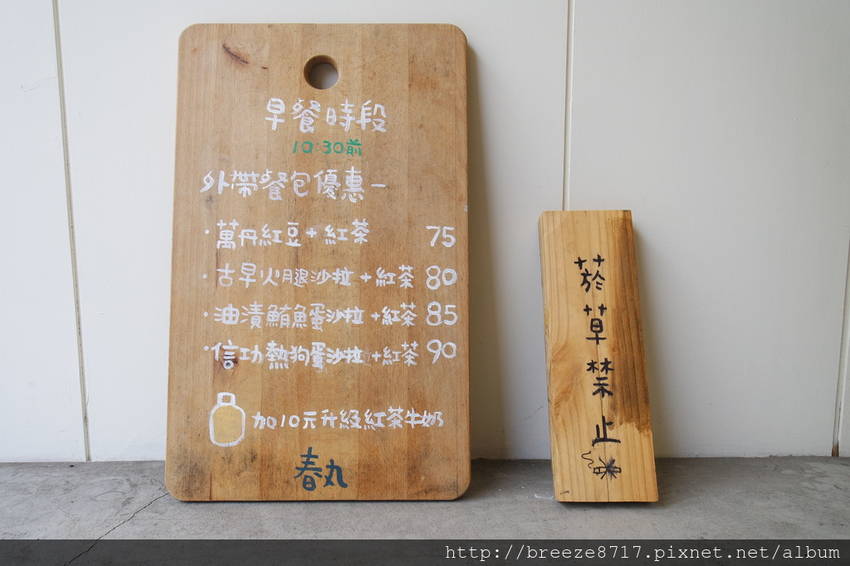 早餐時段
10:30前
外帶餐包優惠—
·萬丹紅豆+紅茶 75
·古早火腿沙拉+紅茶 80
·油漬鮪魚蛋沙拉+紅茶 85
·信功熱狗蛋沙拉+紅茶 90
加10元升級紅茶牛奶
春丸
菸草禁止
http://breeze8717.pixnet.net/album